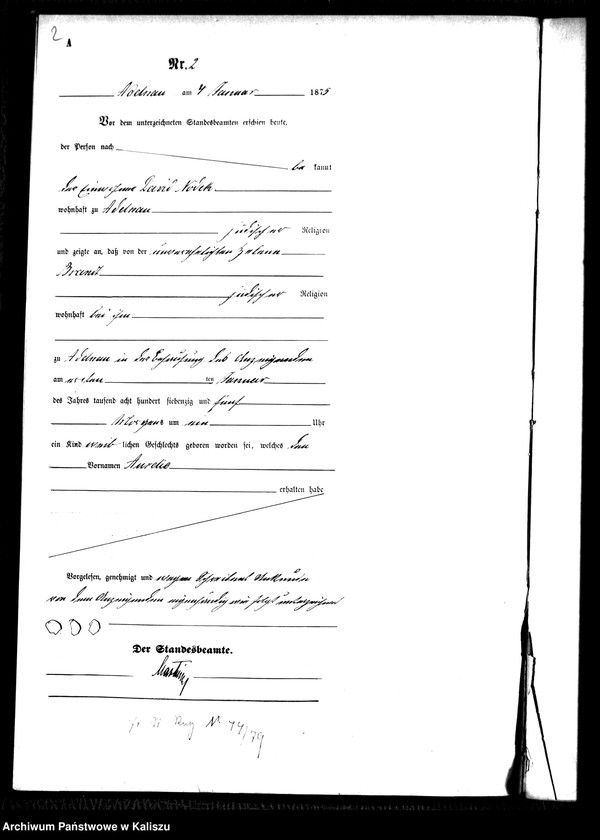 2
A
Nr. 2
Adelnau am 4 Januar 1875
Vor dem unterzeichneten Standesbeamten erschien heute,
der Person nach
be kannt
der Einwohner David Nodek
wohnhaft zu Adelnau
jüdischer Religion
und zeigte an, daß von der unverehelichten Helene
Brand
jüdischer Religion
wohnhaft bei ihm
zu Adelnau in der Behausung des Anzeigenden
am ersten ten Januar
des Jahres tausend acht hundert siebenzig und fünf
Morgens um neun Uhr
ein Kind weib lichen Geschlechts geboren worden sei, welches den
Vornamen Aurelie
erhalten habe
Vorgelesen, genehmigt und wegen Schreibens Unkunde
von dem Anzeigenden eigenhändig wie folgt unterzeichnet
Der Standesbeamte.
Martini
No 74/79
Archiwum Państwowe w Kaliszu